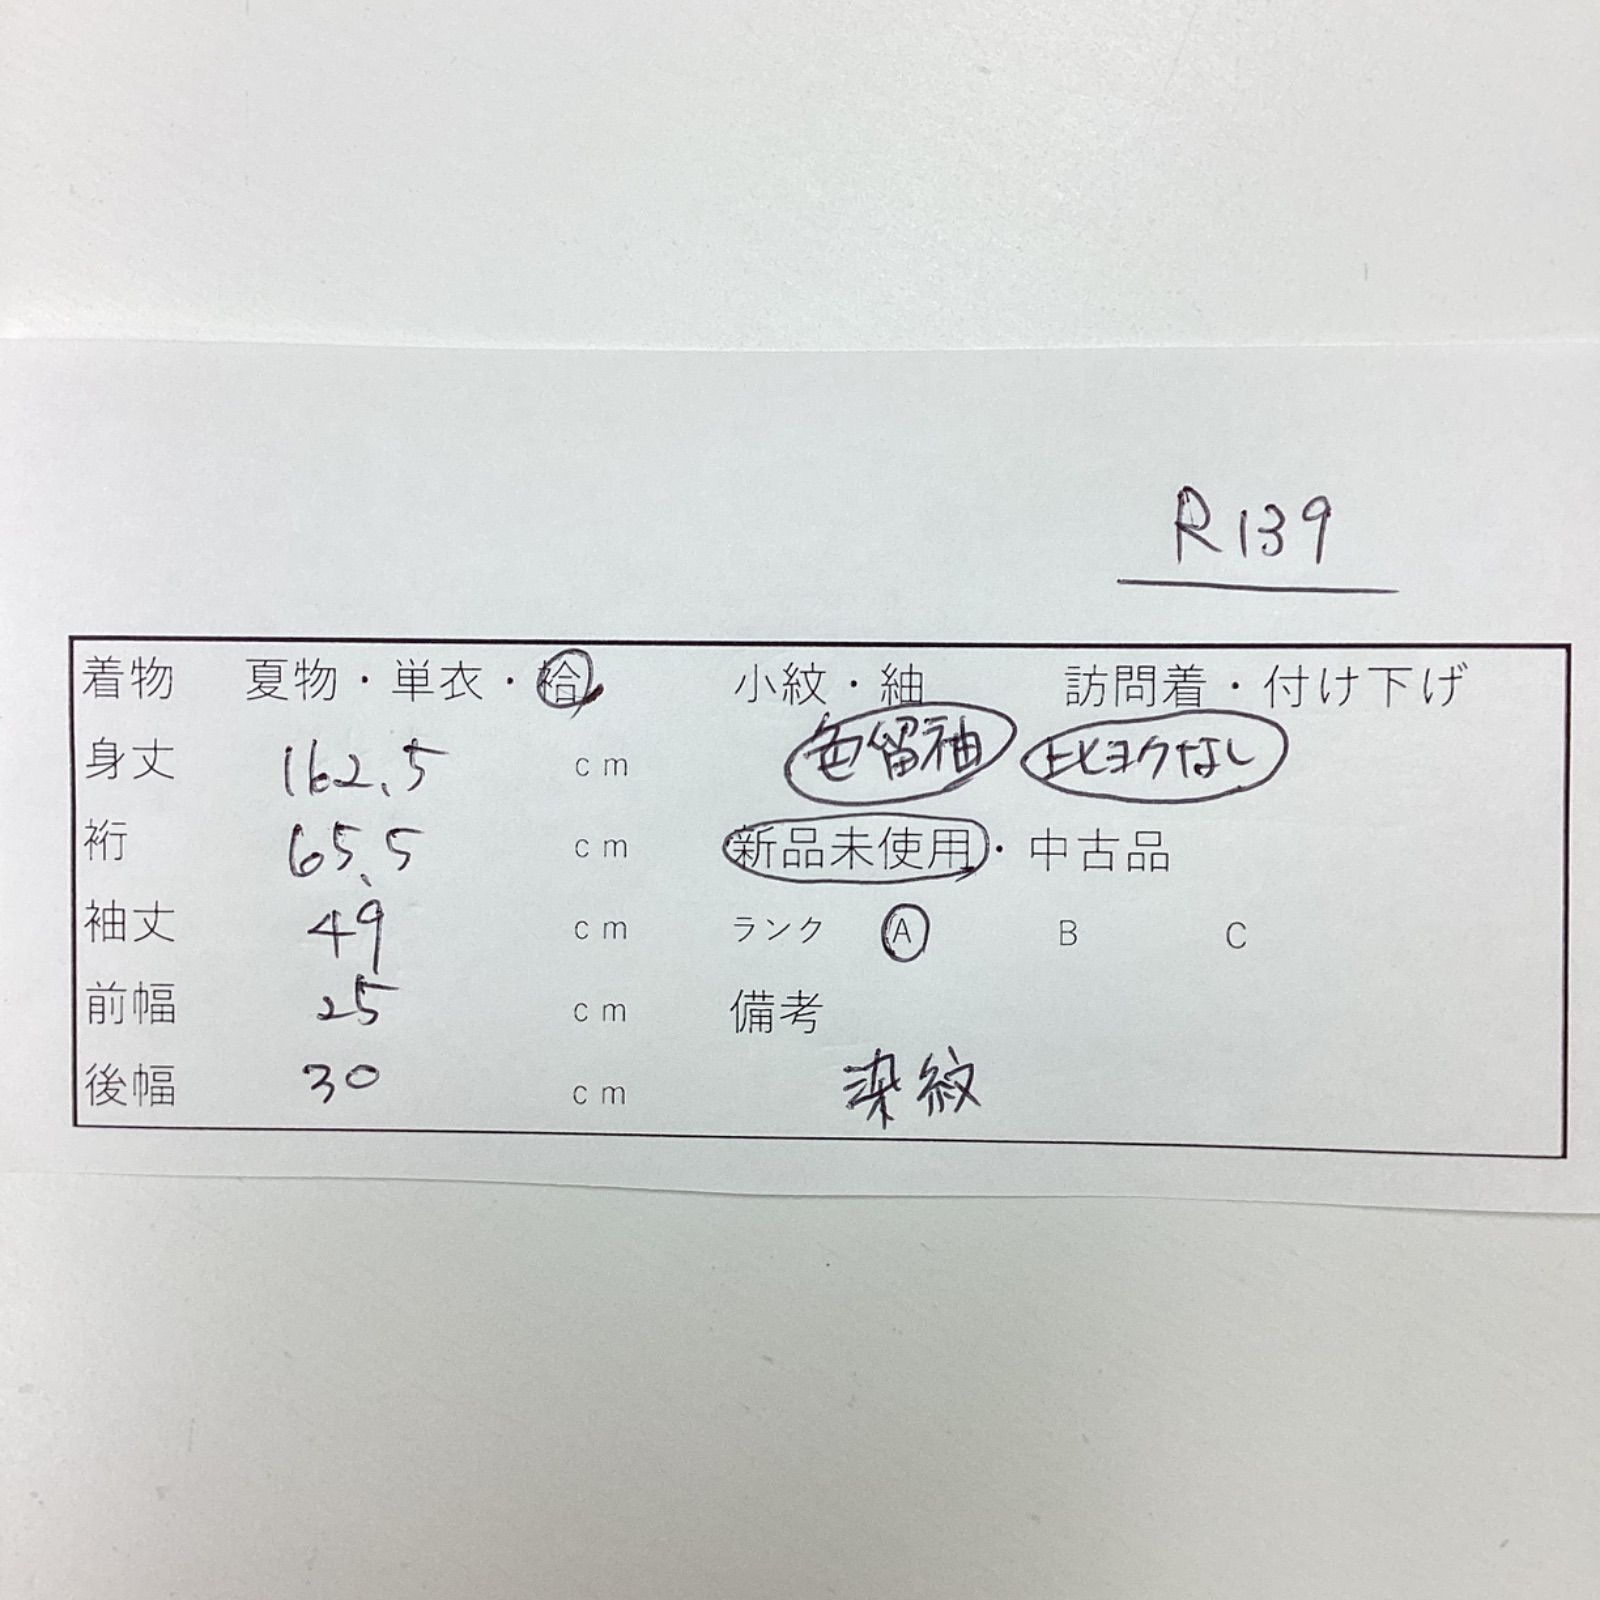 R139
着物 夏物・単衣・袷 小紋・紬 訪問着・付け下げ
身丈 162.5 cm 色留袖 比ヨクなし
裄 65.5 cm 新品未使用・中古品
袖丈 49 cm ランク A B C
前幅 25 cm 備考
後幅 30 cm 染紋